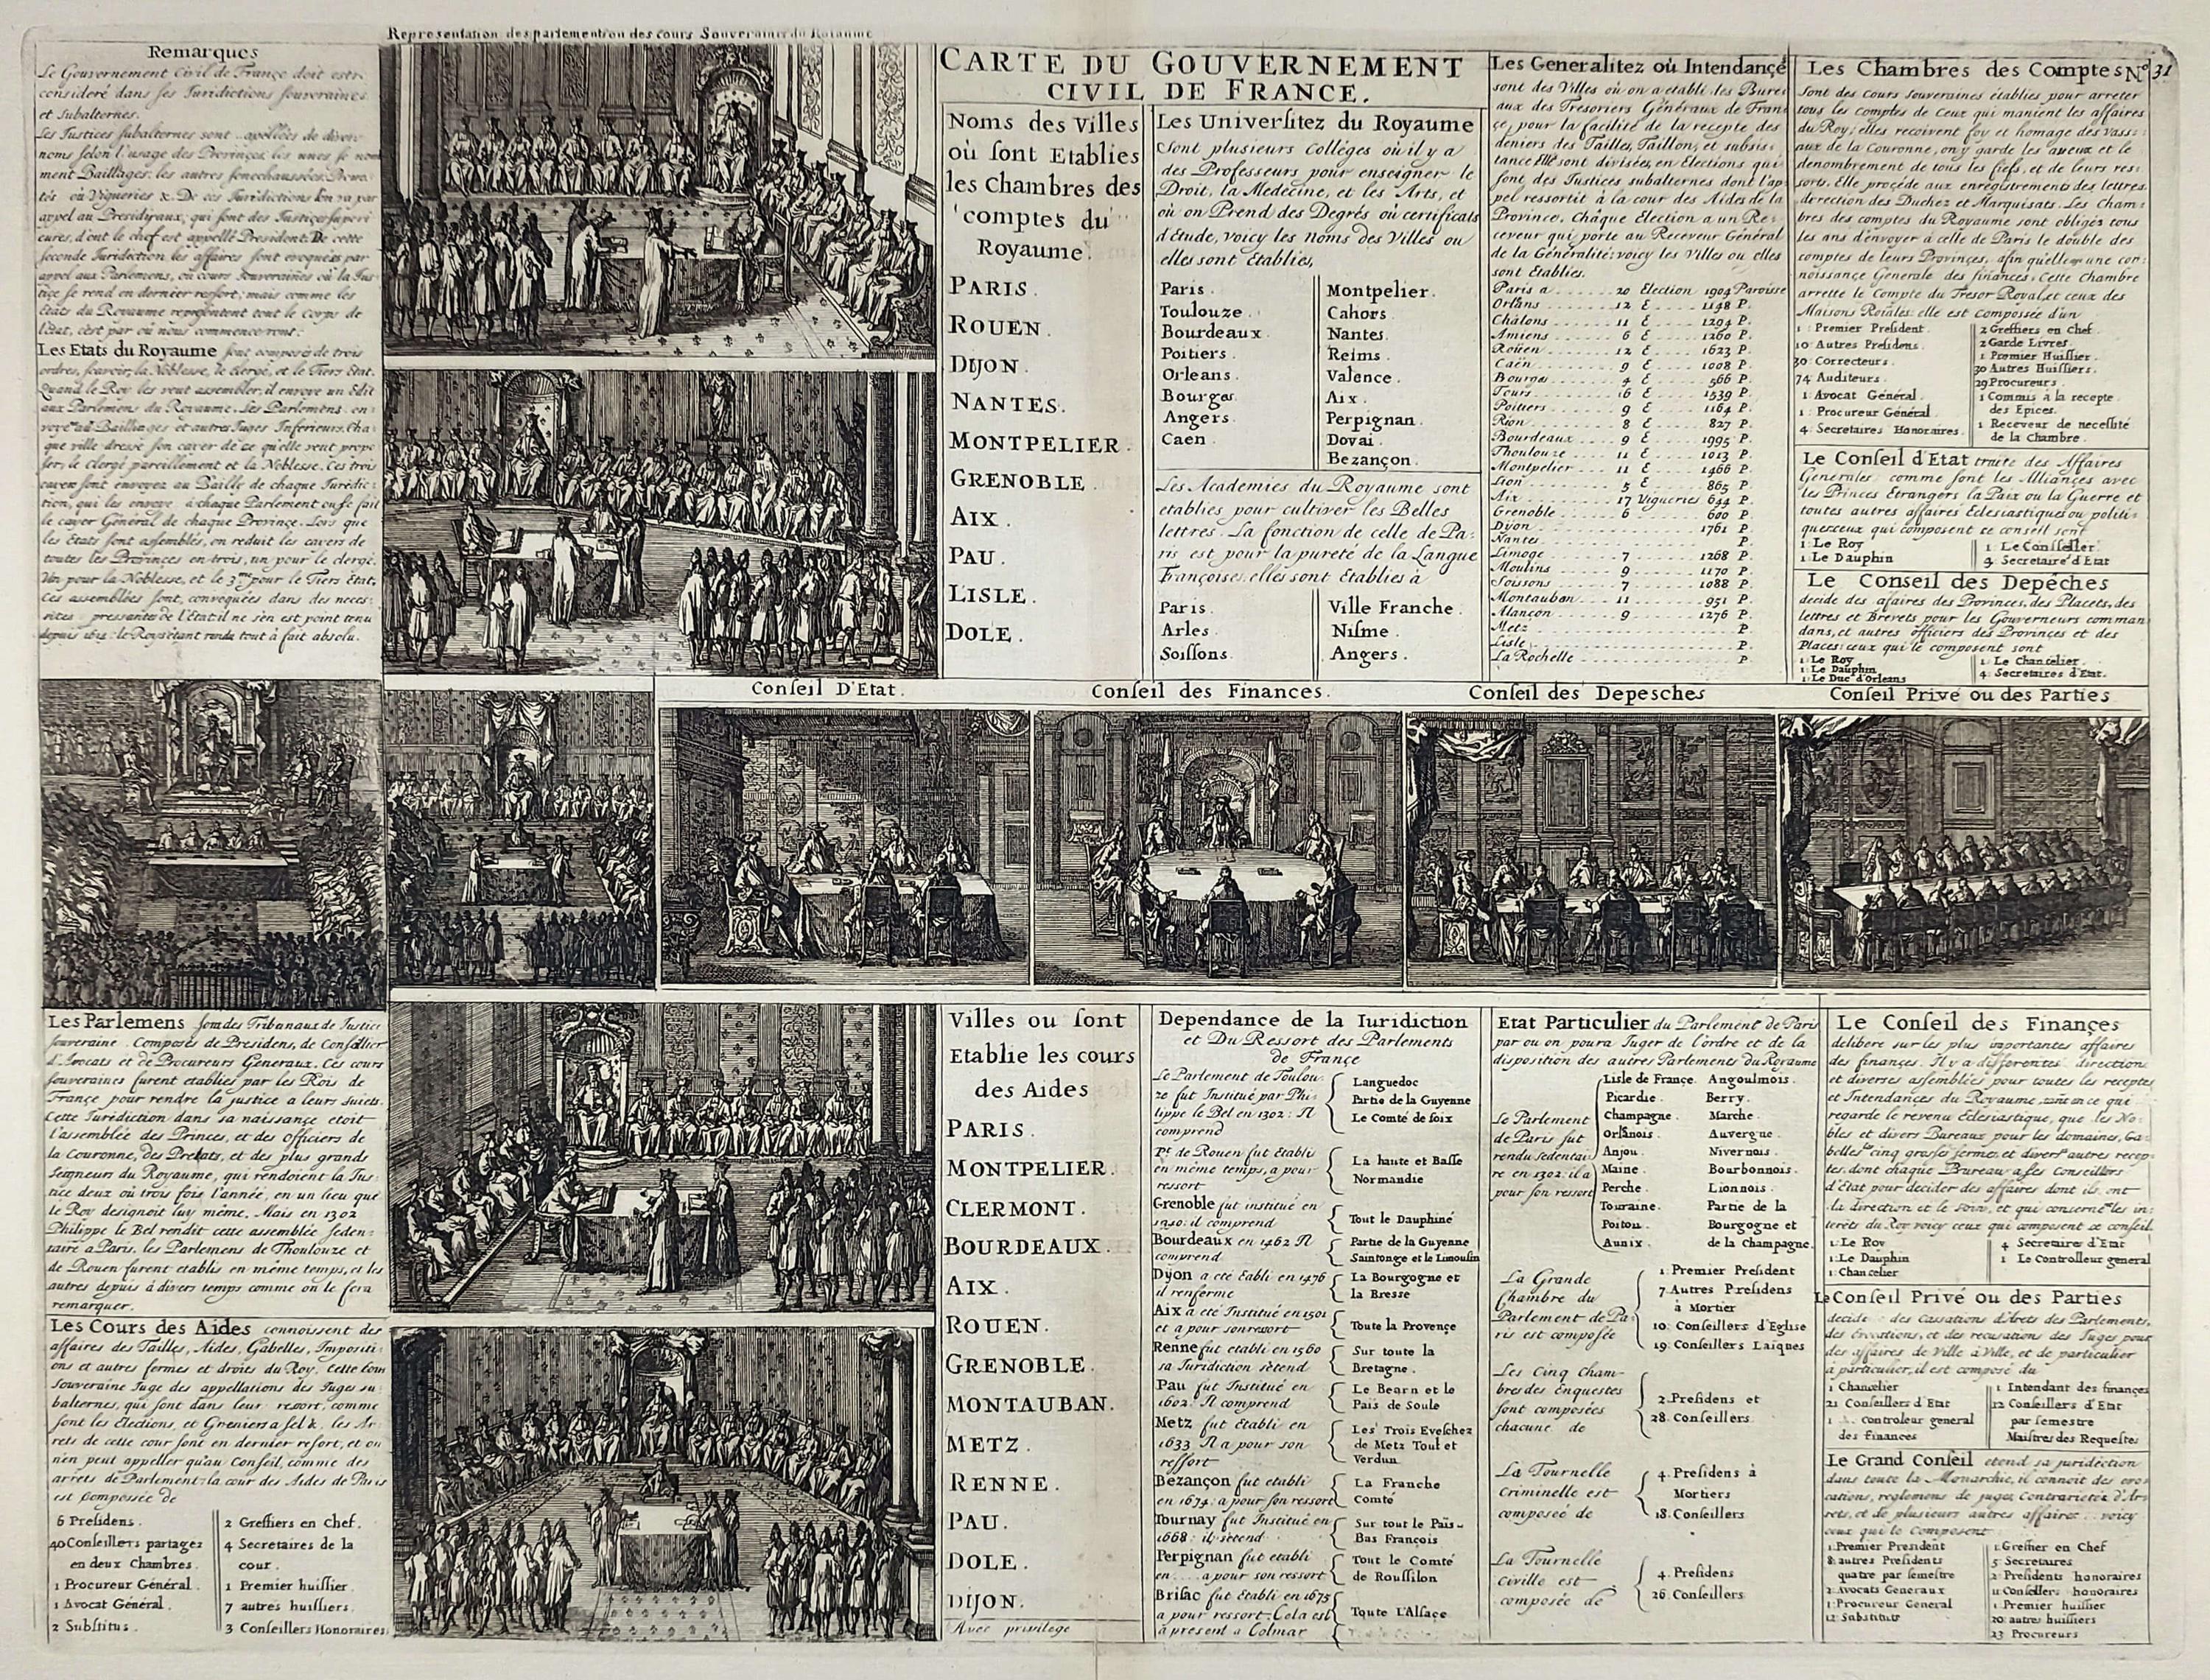 Representation des parlement ou des cours Souveraines du Roiaume
Remarques
Le Gouvernement Civil de France doit estre
consideré dans ses Iuridictions souveraines
et Subalternes.
Les Iustices subalternes sont appellées de divers
noms selon l'usage des Provinces, les unes se nom
ment Baillages, les autres senechaussées, Prevo-
tés où Vigueries &. De ces Iuridictions lon va par
appel au Presidiaux, qui sont des Iustices superi
eures, dont le chef est appellé President. De cette
seconde Iuridiction les affaires sont evoquées par
appel aux Parlemens, où cours souveraines où la Ius-
tice se rend en dernier ressort, mais comme les
Etats du Royaume representent tout le corps de
l'état, cest par où nous commencerons.
Les Etats du Royaume sont composés de trois
ordres, scavoir, la Noblesse, le clergé, et le Tiers Etat.
Quand le Roy les veut assembler, il envoye un Edit
aux Parlemens du Royaume. Les Parlemens en-
voye au Baillages et autres Iuges Inferieurs. Cha-
que ville dresse son cayer de ce qu'elle veut propo
ser; le clergé pareillement et la Noblesse. Ces trois
cayers sont envoyez au Baille de chaque Iuridic-
tion, qui les envoye à chaque Parlement ou se fait
le cayer Général de chaque Province. Lors que
les Etats sont assemblés, on reduit les cayers de
toutes les Provinces en trois, un pour le clergé,
Un pour la Noblesse, et le 3me pour le Tiers Etat,
Ces assemblées sont, convoquées dans des neces-
sités pressantes de l'Etat il ne s'en est point tenu
depuis 1612: le Roy s'étant rendu tout à fait absolu.
CARTE DU GOUVERNEMENT
CIVIL DE FRANCE.
Noms des Villes
où sont Etablies
les Chambres des
comptes du
Royaume.
PARIS.
ROUEN.
DIJON.
NANTES.
MONTPELIER.
GRENOBLE.
AIX.
PAU.
LISLE.
DOLE.
Les Universitez du Royaume
Sont plusieurs Colléges où il y a
des Professeurs pour enseigner le
Droit, la Medecine, et les Arts, et
où on Prend des Degrés où certificats
d'Etude, voicy les noms des Villes ou
elles sont Etablies,
Paris.
Toulouze.
Bourdeaux.
Poitiers.
Orleans.
Bourges.
Angers.
Caen.
Montpelier.
Cahors.
Nantes.
Reims.
Valence.
Aix.
Perpignan.
Dovai.
Bezançon.
Les Academies du Royaume sont
etablies pour cultiver les Belles
lettres. La fonction de celle de Pa-
ris est pour la pureté de la Langue
Françoise; elles sont Etablies à
Paris.
Arles.
Soissons.
Ville Franche.
Nisme.
Angers.
Les Generalitez où Intendançe
sont des Villes où on a etabli des Bure-
aux des Tresoriers Généraux de Fran-
çe, pour la facilité de la recepte des
deniers des Tailles, Taillon, et subsis-
tance Elle sont divisées en Elections qui
sont des Iustices subalternes dont l'ap
pel ressortit à la cour des Aides de la
Province, chaque Election a un Re-
ceveur qui porte au Receveur Général
de la Généralité; voicy les Villes ou elles
sont Etablies.
Paris a 20 Election 1904 Paroisse
Orleans 12 E 1148 P.
Châlons 11 E 1294 P.
Amiens 6 E 1260 P.
Roüen 12 E 1623 P.
Caën 9 E 1008 P.
Bourges 4 E 566 P.
Tours 16 E 1539 P.
Poitiers 9 E 1164 P.
Rion 8 E 827 P.
Bourdeaux 9 E 1995 P.
Thoulouze 11 E 1013 P.
Montpelier 11 E 1466 P.
Lion 5 E 865 P.
Aix 17 Vigueries 644 P.
Grenoble 6 600 P.
Dijon 1761 P.
Nantes P.
Limoge 7 1268 P.
Moulins 9 1170 P.
Soissons 7 1088 P.
Montauban 11 951 P.
Alançon 9 1276 P.
Metz P.
Lisle P.
La Rochelle P
Les Chambres des Comptes No 31
Sont des Cours Souveraines établies pour arreter
tous les comptes de ceux qui manient les affaires
du Roy; elles recoivent foy et homage des vass:
aux de la Couronne, on y garde les aveux et le
denombrement de tous les fiefs, et de leurs res:
sorts. Elle procéde aux enregistrements des lettres,
d'erection des Duchez et Marquisats. Les Cham:
bres des comptes du Royaume sont obligés tous
les ans d'envoyer à celle de Paris le double des
comptes de leurs Provinces, afin qu'elle aye une con:
noissance Generale des finances. Cette Chambre
arrette le Compte du Tresor Royal, et ceux des
Maisons Roiales: elle est composée d'un
1 Premier President.
10 Autres Presidens.
30 Correcteurs.
74 Auditeurs.
1 Avocat Général.
1 Procureur Général.
4 Secretaires Honoraires.
2 Greffiers en Chef.
2 Garde Livres.
1 Premier Huissier.
30 Autres Huissiers.
29 Procureurs.
1 Commis à la recepte
des Epices.
1 Receveur de necessité
de la Chambre.
Le Conseil d'Etat traite des Affaires
Generales: comme sont les Alliances avec
les Princes Etrangers la Paix ou la Guerre et
toutes autres affaires Eclesiastiques ou politi-
ques: ceux qui composent ce conseil sont
1. Le Roy
1. Le Dauphin
1. Le Conseller
9. Secretaire d'Etat
Le Conseil des Depêches
decide des afaires des Provinces, des Placets, des
lettres et Brevets pour les Gouverneurs comman
dans, et autres officiers des Provinces et des
Places: ceux qui le composent sont
1. Le Roy
1. Le Dauphin
1. Le Duc d'Orleans
1. Le Chancelier.
4. Secretaires d'Etat.
Conseil D'Etat.
Conseil des Finances.
Conseil des Depesches
Conseil Privé ou des Parties
Les Parlemens sont des Tribunaux de Iustice
souveraine. Composés de Presidens, de Consellier
d'Avocats et de Procureurs Generaux. Ces cours
souveraines furent etablies par les Rois de
Françe pour rendre la justice a leurs sujets.
Cette Iuridiction dans sa naissance etoit
l'assemblée des Princes, et des officiers de
la Couronne, des Prelats, et des plus grands
seigneurs du Royaume, qui rendoient la Jus-
tice deux où trois fois l'année, en un lieu que
le Roy designoit luy même. Mais en 1302
Philippe le Bel rendit cette assemblée seden-
taire a Paris, les Parlemens de Thoulouze et
de Rouen furent etablis en même temps, et les
autres depuis à divers temps comme on le fera
remarquer.
Les Cours des Aides connoissent des
affaires des Tailles, Aides, Gabelles, Impositi-
ons et autres fermes et droits du Roy. Cette cour
Souveraine Iuge des appellations des Iuges su
balternes, qui sont dans leur ressort, comme
sont les Elections, et Greniers a sel &. les Ar-
rets de cette cour sont en dernier resort, et on
n'en peut appeller qu'au Conseil, comme des
arrets de Parlement: la cour des Aides de Paris
est Composée de
6 Presidens.
40 Conseillers partagez
en deux Chambres.
1 Procureur Général.
1 Avocat Général.
2 Substitus.
2 Greffiers en Chef.
4 Secretaires de la
cour.
1 Premier huissier.
7 autres huissiers.
3 Conseillers Honoraires.
Villes ou sont
Etablie les cours
des Aides
PARIS.
MONTPELIER.
CLERMONT.
BOURDEAUX.
AIX.
ROUEN.
GRENOBLE.
MONTAUBAN.
METZ.
RENNE.
PAU.
DOLE.
DIJON.
Avec privilege
Dependance de la Iuridiction
et Du Ressort des Parlements
de Françe
Le Parlement de Toulou-
ze fut Institué par Phi-
lippe le Bel en 1302: Il
comprend
Languedoc
Partie de la Guyenne
Le Comté de foix
Pt. de Rouen fut Etabli
en même temps, a pour
ressort
La haute et Basse
Normandie
Grenoble fut institué en
il comprend
Tout le Dauphiné
Bourdeaux en 1462 Il
comprend.
Partie de la Guyenne
Saintonge et le Limousin
Dijon a eté Etabli en 1476
il renferme
La Bourgogne et
la Bresse
Aix a eté Institué en 1501
et a pour son ressort
Toute la Provençe
Renne fut etabli en 1560
sa Iuridiction s'étend
Sur toute la
Bretagne.
Pau fut Institué en
1602. Il comprend
Le Bearn et le
Pais de Soule
Metz fut Etabli en
1633 Il a pour son
ressort
Les Trois Eveschez
de Metz Toul et
Verdun
Bezançon fut etabli
en 1674: a pour son ressort
La Franche
Comté
Tournay fut Institué en
1668: il s'etend
Sur tout le Païs-
Bas François
Perpignan fut etabli
en .... a pour son ressort
Tout le Comté
de Roussilon
Brisac fut Etabli en 1675
a pour ressort. Cela est
à present a Colmar
Toute L'Alsace
Etat Particulier du Parlement de Paris
par ou on poura Iuger de l'ordre et de la
disposition des autres Parlements du Royaume
Le Parlement
de Paris fut
rendu Sedentai
re en 1302. il a
pour son ressort
Lisle de France.
Picardie.
Champagne.
Orleanois.
Anjou.
Maine.
Perche.
Touraine.
Poitou.
Aunix.
Angoulmois.
Berry.
Marche.
Auvergne.
Nivernois.
Bourbonnois.
Lionnois.
Partie de la
Bourgogne et
de la Champagne.
La Grande
Chambre du
Parlement de Pa-
ris est composée
1. Premier President
7. Autres Presidens
à Mortier
10. Conseillers d'Eglise
19. Conseillers Laïques
Les Cinq Cham-
bres des Enquestes
sont composées
chacune de
2. Presidens et
28. Conseillers.
La Tournelle
Criminelle est
composée de
4. Presidens à
Mortiers
18. Conseillers
La Tournelle
Civille est
composée de
4. Presidens
26. Conseillers
Le Conseil des Finançes
delibere sur les plus importantes affaires
des finances. Il y a differentes direction
et diverses assemblées pour toutes les receptes
et Intendances du Royaume, tant en ce qui
regarde le revenu Eclesiastique, que les No-
bles et divers Bureaux pour les domaines, Ga-
belles cinq grosses fermes, et divers autres recep-
tes, dont chaque Bureau a ses Conseillers
d'Etat pour decider des affaires dont ils ont
la direction et le soin, et qui concerne les in-
terêts du Roy voicy ceux qui composent ce conseil.
1. Le Roy
1. Le Dauphin
1. Chancelier
4 Secretaire d'Etat
1 Le Controlleur general
Le Conseil Privé ou des Parties
decide des Cassations d'Arets des Parlements,
des Evocations, et des recusations des Iuges pour
des affaires de Ville à Ville, et de particulier
à particulier, il est composé du
1 Chancelier
21 Conseillers d'Etat
1 controleur general
des finances
1. Intendant des finances
12 Conseillers d'Etat
par semestre
Maistres des Requestes
Le Grand Conseil etend sa juridiction
dans toute la Monarchie, il connoit des evo-
cations, reglemens de juges, Contrarietez d'Ar-
rets, et de plusieurs autres affaires. voicy
ceux qui le Composent
1. Premier President
8. autres Presidents
quatre par semestre
2. Avocats Generaux
1. Procureur General
12. Substituts
1. Greffier en Chef
5. Secretaires
2. Presidents honoraires
11 Conseillers honoraires
1. Premier huissier
20. autres huissiers
23 Procureurs